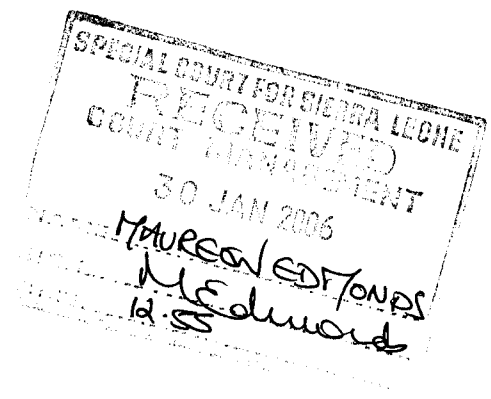 SPECIAL COURT FOR SIERRA LEONE
RECEIVED
COURT MANAGEMENT
30 JAN 2006
MAUREEN EDMONDS
MEdmonds
12.55